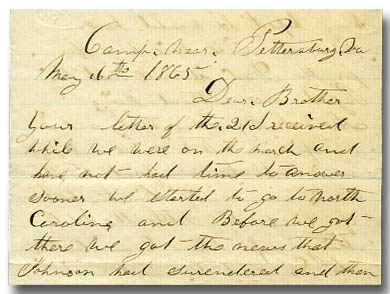 Camp. Near. Pettersburg Va
May 16th 1865
Dear. Brother
your letter of the. 21st received
while we were on the march and
have not had time to answer
sooner we started to go to North
Carolina and Before we got
there we got the news that
Johnson had surendered and then